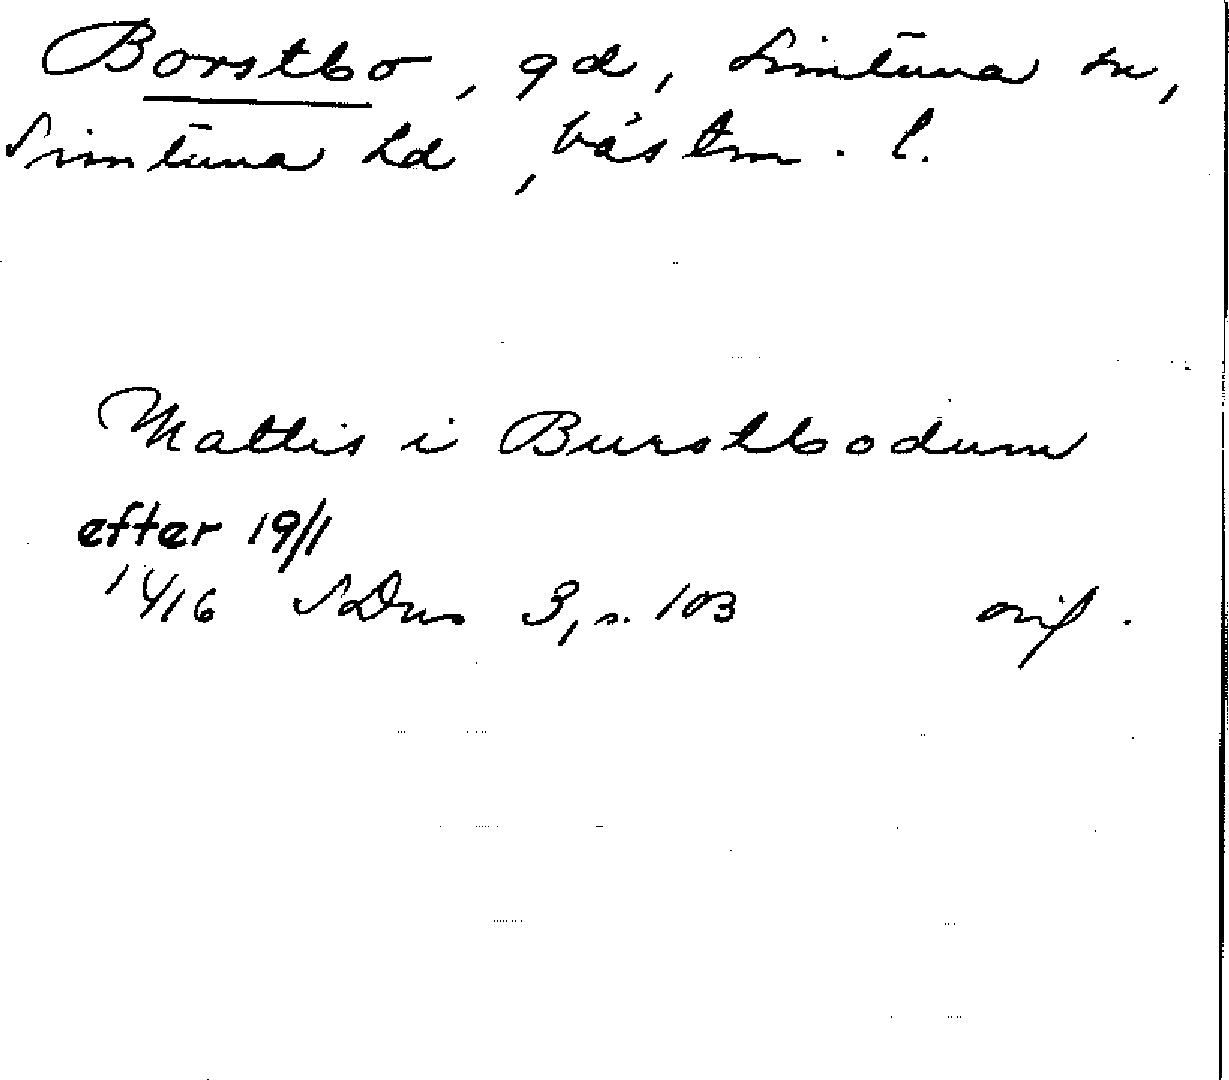 Borstbo, gd, Simtuna sn,
Simtuna hd, Västm. l.
Mattis i Burstbodum
efter 19/1
1416 SDns 3, s. 103 orig.